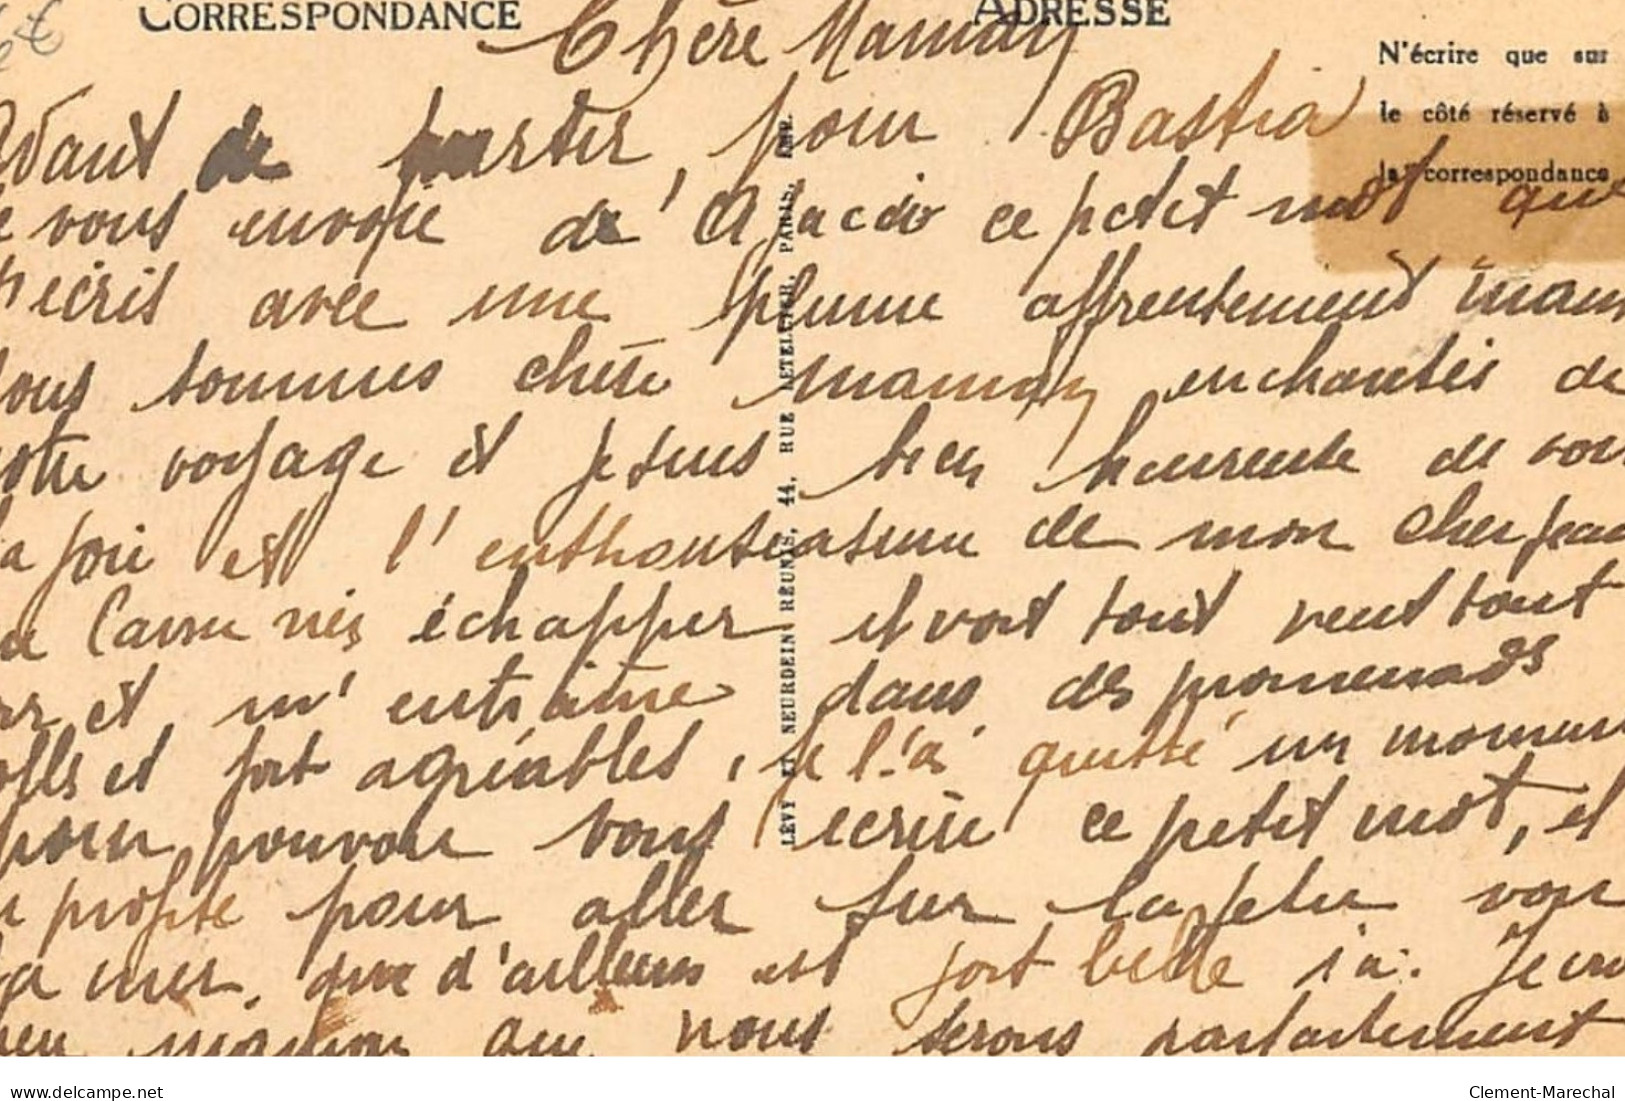 CORRESPONDANCE
ADRESSE
N'écrire que sur
le côté réservé à
la correspondance
Chère Maman
Avant de partir, pour Bastia
je vous envoie d'Ajaccio ce petit mot que
j'écris avec une plume affreusement mauv
Nous sommes chère Maman enchantés de
notre voyage et je suis bien heureuse de voir
la joie et l'enthousiasme de mon cher Jean
échapper il voit tout veut tout
et m'entraîne dans des promenades
folles et fort agréables, je l'ai quitté un moment
pour pouvoir vous écrire ce petit mot, et
profite pour aller sur la jetée voir
la mer, que d'ailleurs est fort belle ici. Je
que nous serons parfaitement
LÉVY ET NEURDEIN RÉUNIS, 44, RUE LETELLIER, PARIS, IMP.
delcampe.net
Clement-Marechal